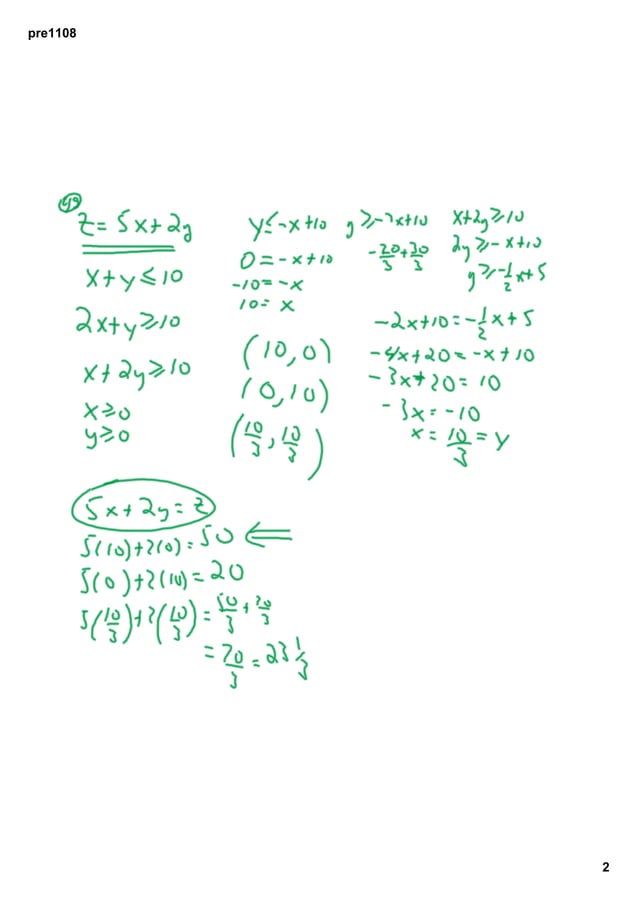 pre1108
49
z = 5x + 2y
x + y ≤ 10
2x + y ≥ 10
x + 2y ≥ 10
x ≥ 0
y ≥ 0
y ≤ -x + 10
0 = -x + 10
-10 = -x
10 = x
(10, 0)
(0, 10)
(10/3, 10/3)
y ≥ -2x + 10
-20/3 + 30/3
x + 2y ≥ 10
2y ≥ -x + 10
y ≥ -1/2 x + 5
-2x + 10 = -1/2 x + 5
-4x + 20 = -x + 10
-3x + 20 = 10
-3x = -10
x = 10/3 = y
5x + 2y = z
5(10) + 2(0) = 50 ⇐
5(0) + 2(10) = 20
5(10/3) + 2(10/3) = 50/3 + 20/3
= 70/3 = 23 1/3
2